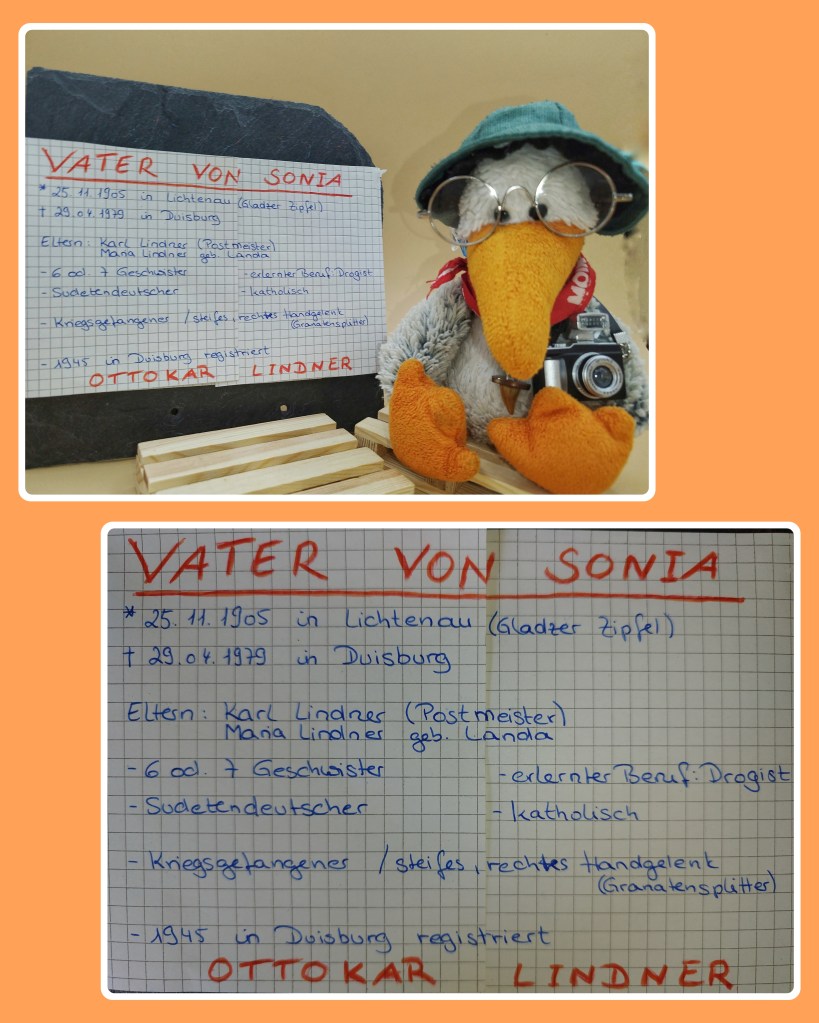 VATER VON SONIA
* 25.11.1905 in Lichtenau (Gladzer Zipfel)
† 29.04.1979 in Duisburg
Eltern: Karl Lindner (Postmeister)
Maria Lindner geb. Landa
- 6 od. 7 Geschwister - erlernter Beruf: Drogist
- Sudetendeutscher - katholisch
- Kriegsgefangener / steifes, rechtes Handgelenk
(Granatensplitter)
- 1945 in Duisburg registriert
OTTOKAR LINDNER
VATER VON SONIA
* 25.11.1905 in Lichtenau (Gladzer Zipfel)
† 29.04.1979 in Duisburg
Eltern: Karl Lindner (Postmeister)
Maria Lindner geb. Landa
- 6 od. 7 Geschwister - erlernter Beruf: Drogist
- Sudetendeutscher - katholisch
- Kriegsgefangener / steifes, rechtes Handgelenk
(Granatensplitter)
- 1945 in Duisburg registriert
OTTOKAR LINDNER